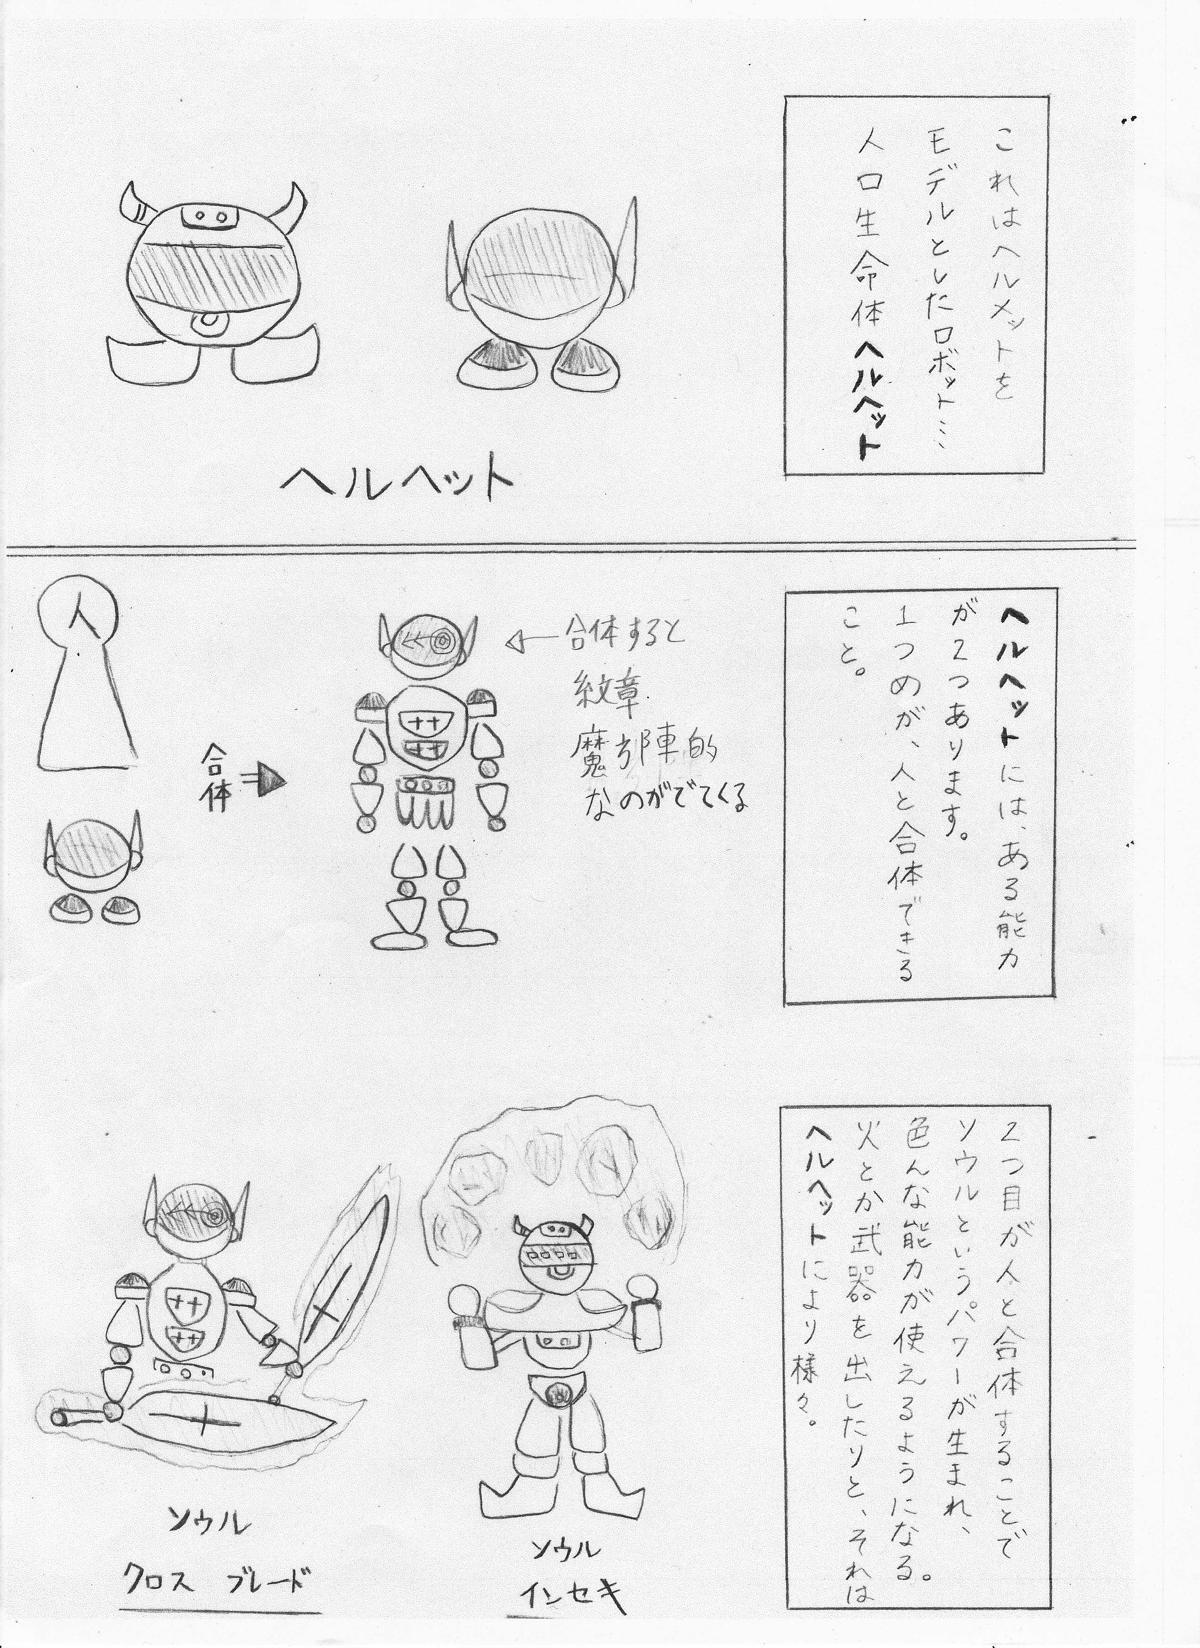 これはヘルメットを
モデルとしたロボット…
人口生命体ヘルヘット
ヘルヘット
ヘルヘットには、ある能力
が2つあります。
1つめが、人と合体できる
こと。
人
合体
←合体すると
紋章
魔引陣的
なのがでてくる
2つ目が人と合体することで
ソウルというパワーが生まれ、
色んな能力が使えるようになる。
火とか武器を出したりと、それは
ヘルヘットにより様々。
ソウル
クロス ブレード
ソウル
インセキ